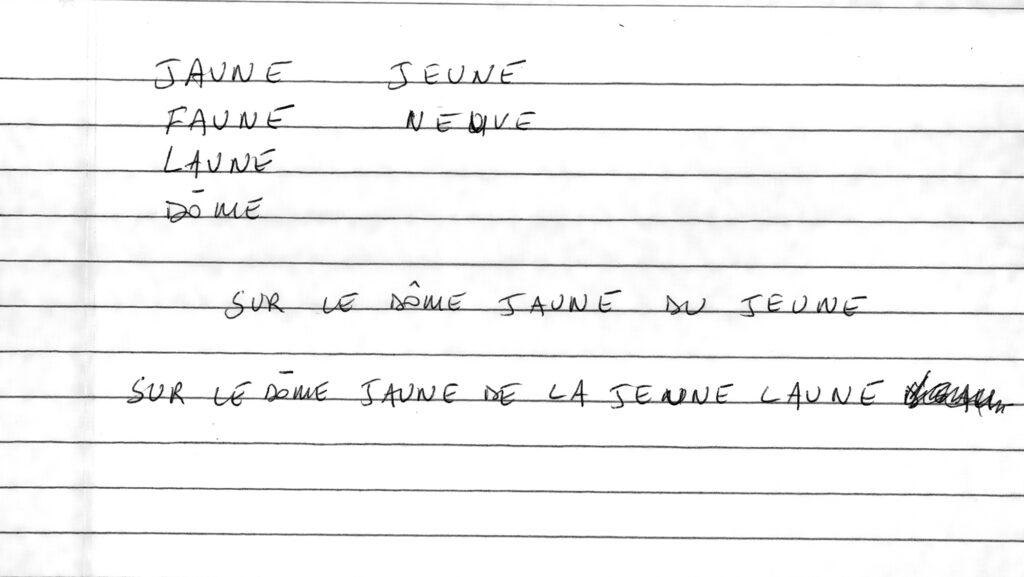 JAUNE JEUNE
FAUNE NEUVE
LAUNE
DŌME
SUR LE DÔME JAUNE DU JEUNE
SUR LE DŌME JAUNE DE LA JEUNE LAUNE